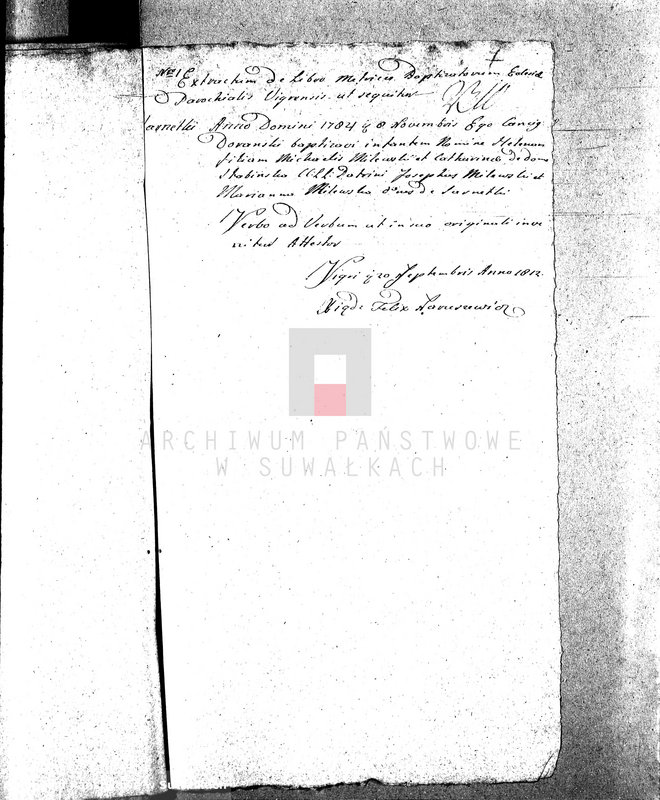 No 1 Extractum de Libro Metrices Baptisatorum Eclesiæ
Parochialis Vigrensis ut sequitur
Anno Domini 1784 8 Novembris Ego
baptisavi infantem Nomine Helenam
filiam Michaelis Milewski et Catharinæ de domo
Patrini Josephus Milewski et
Marianna Milewska de
Verbo ad Verbum ut in suo originali inve
nitur Attestor
Vigri 20 Septembris Anno 1812
Xiądz Felix
ARCHIWUM PAŃSTWOWE
W SUWAŁKACH